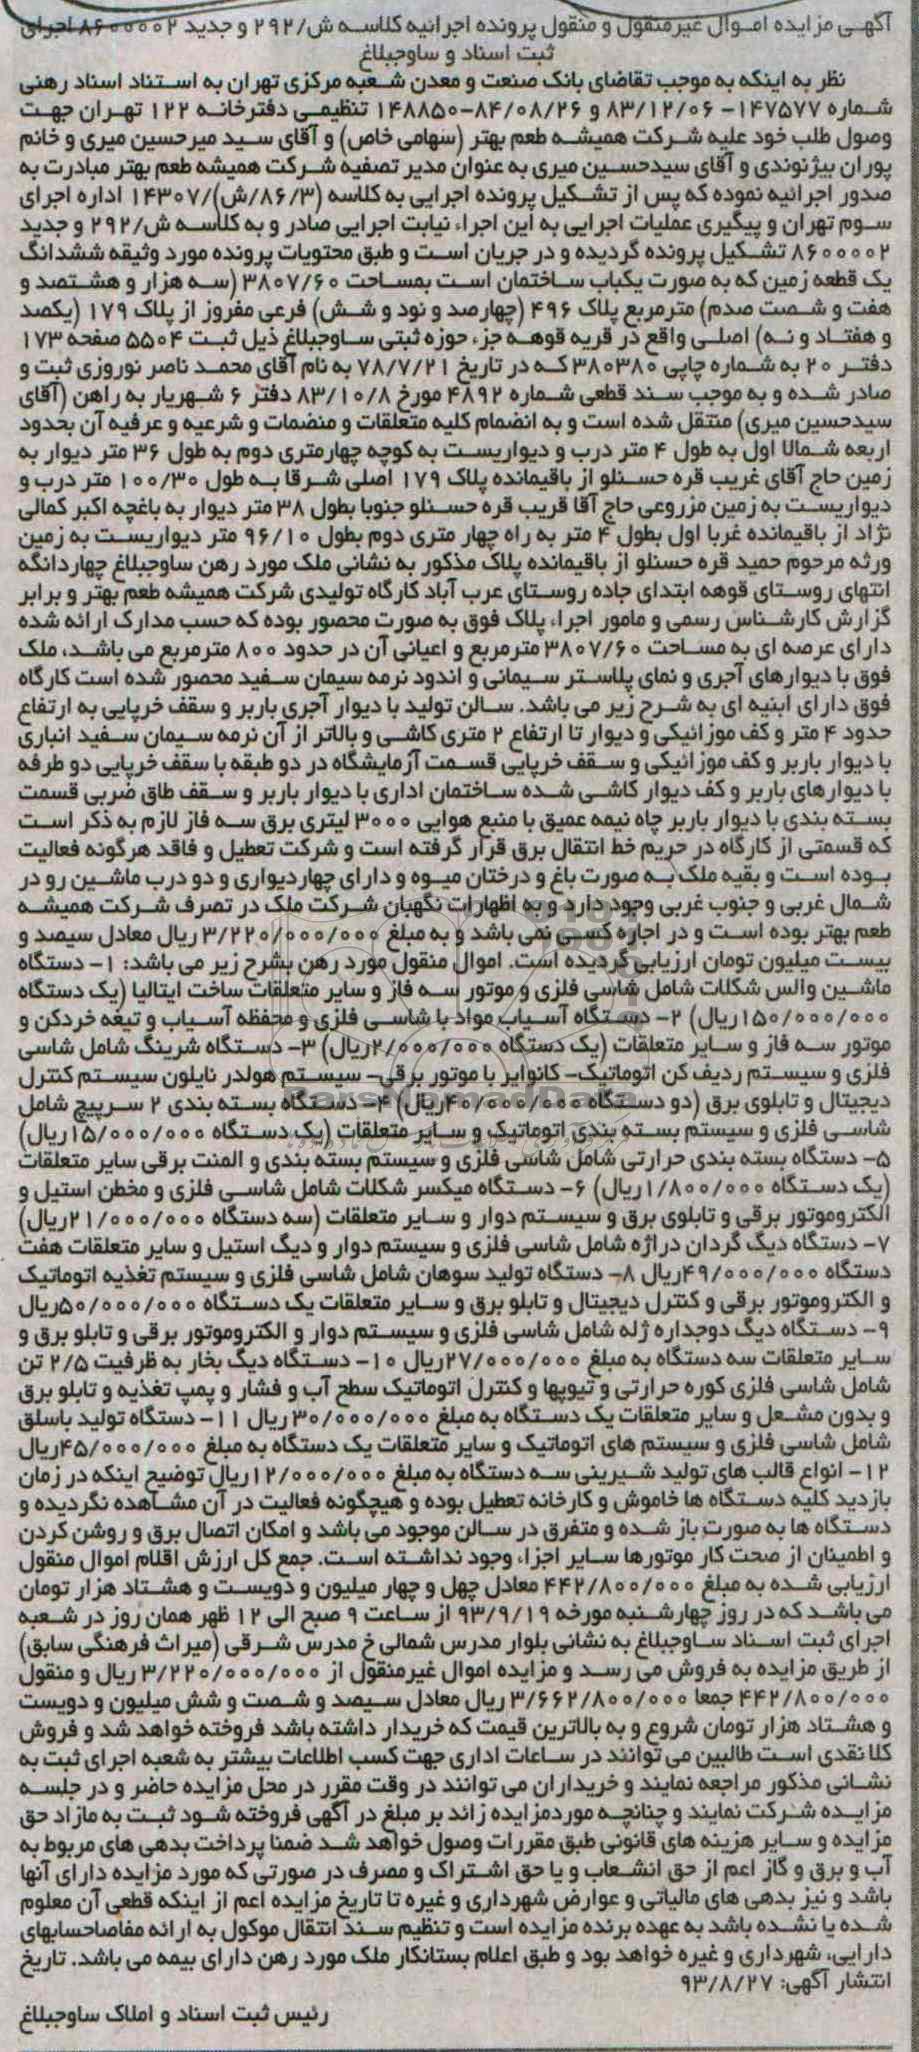 آگهی مزایده اموال غیرمنقول و منقول پرونده اجرائیه کلاسه ش/۲۹۲ و جدید ۸۶۰۰۰۰۲ اجرای
ثبت اسناد و ساوجبلاغ
نظر به اینکه به موجب تقاضای بانک صنعت و معدن شعبه مرکزی تهران به استناد اسناد رهنی
شماره ۱۴۷۵۷۷- ۸۳/۱۲/۰۶ و ۸۴/۰۸/۲۶-۱۴۸۸۵۰ تنظیمی دفترخانه ۱۲۲ تهران جهت
وصول طلب خود علیه شرکت همیشه طعم بهتر (سهامی خاص) و آقای سید میرحسین میری و خانم
پوران بیژنوندی و آقای سیدحسین میری به عنوان مدیر تصفیه شرکت همیشه طعم بهتر مبادرت به
صدور اجرائیه نموده که پس از تشکیل پرونده اجرایی به کلاسه (۸۶/۳/ش)/۱۴۳۰۷ اداره اجرای
سوم تهران و پیگیری عملیات اجرایی به این اجراء نیابت اجرایی صادر و به کلاسه ش/۲۹۲ و جدید
۸۶۰۰۰۰۲ تشکیل پرونده گردیده و در جریان است و طبق محتویات پرونده مورد وثیقه ششدانگ
یک قطعه زمین که به صورت یکباب ساختمان است بمساحت ۳۸۰۷/۶۰ (سه هزار و هشتصد و
هفت و شصت صدم) مترمربع پلاک ۴۹۶ (چهارصد و نود و شش) فرعی مفروز از پلاک ۱۷۹ (یکصد
و هفتاد و نه) اصلی واقع در قریه قوهه جزء حوزه ثبتی ساوجبلاغ ذیل ثبت ۵۵۰۴ صفحه ۱۷۳
دفتر ۲۰ به شماره چاپی ۳۸۰۳۸۰ که در تاریخ ۷۸/۷/۲۱ به نام آقای محمد ناصر نوروزی ثبت و
صادر شده و به موجب سند قطعی شماره ۴۸۹۲ مورخ ۸۳/۱۰/۸ دفتر ۶ شهریار به راهن (آقای
سیدحسین میری) منتقل شده است و به انضمام کلیه متعلقات و منضمات و شرعیه و عرفیه آن بحدود
اربعه شمالا اول به طول ۴ متر درب و دیواریست به کوچه چهارمتری دوم به طول ۳۶ متر دیوار به
زمین حاج آقای غریب قره حسنلو از باقیمانده پلاک ۱۷۹ اصلی شرقا به طول ۱۰۰/۳۰ متر درب و
دیواریست به زمین مزروعی حاج آقا قریب قره حسنلو جنوبا بطول ۳۸ متر دیوار به باغچه اکبر کمالی
نژاد از باقیمانده غربا اول بطول ۴ متر به راه چهار متری دوم بطول ۹۶/۱۰ متر دیواریست به زمین
ورثه مرحوم حمید قره حسنلو از باقیمانده پلاک مذکور به نشانی ملک مورد رهن ساوجبلاغ چهاردانگه
انتهای روستای قوهه ابتدای جاده روستای عرب آباد کارگاه تولیدی شرکت همیشه طعم بهتر و برابر
گزارش کارشناس رسمی و مامور اجراء پلاک فوق به صورت محصور بوده که حسب مدارک ارائه شده
دارای عرصه ای به مساحت ۳۸۰۷/۶۰ مترمربع و اعیانی آن در حدود ۸۰۰ مترمربع می باشد، ملک
فوق با دیوارهای آجری و نمای پلاستر سیمانی و اندود نرمه سیمان سفید محصور شده است کارگاه
فوق دارای ابنیه ای به شرح زیر می باشد. سالن تولید با دیوار آجری باربر و سقف خرپایی به ارتفاع
حدود ۴ متر و کف موزائیکی و دیوار تا ارتفاع ۲ متری کاشی و بالاتر از آن نرمه سیمان سفید انباری
با دیوار باربر و کف موزائیکی و سقف خرپایی قسمت آزمایشگاه در دو طبقه با سقف خرپایی دو طرفه
با دیوارهای باربر و کف دیوار کاشی شده ساختمان اداری با دیوار باربر و سقف طاق ضربی قسمت
بسته بندی با دیوار باربر چاه نیمه عمیق با منبع هوایی ۳۰۰۰ لیتری برق سه فاز لازم به ذکر است
که قسمتی از کارگاه در حریم خط انتقال برق قرار گرفته است و شرکت تعطیل و فاقد هرگونه فعالیت
بوده است و بقیه ملک به صورت باغ و درختان میوه و دارای چهاردیواری و دو درب ماشین رو در
شمال غربی و جنوب غربی وجود دارد و به اظهارات نگهبان شرکت ملک در تصرف شرکت همیشه
طعم بهتر بوده است و در اجاره کسی نمی باشد و به مبلغ ۳/۲۲۰/۰۰۰/۰۰۰ ریال معادل سیصد و
بیست میلیون تومان ارزیابی گردیده است. اموال منقول مورد رهن بشرح زیر می باشد: ۱- دستگاه
ماشین والس شکلات شامل شاسی فلزی و موتور سه فاز و سایر متعلقات ساخت ایتالیا (یک دستگاه
۱۵۰/۰۰۰/۰۰۰ریال) ۲- دستگاه آسیاب مواد با شاسی فلزی و محفظه آسیاب و تیغه خردکن و
موتور سه فاز و سایر متعلقات (یک دستگاه ۲/۰۰۰/۰۰۰ریال) ۳- دستگاه شرینگ شامل شاسی
فلزی و سیستم ردیف کن اتوماتیک- کانوایر با موتور برقی- سیستم هولدر نایلون سیستم کنترل
دیجیتال و تابلوی برق (دو دستگاه ۴۰/۰۰۰/۰۰۰ریال) ۴- دستگاه بسته بندی ۲ سرپیچ شامل
شاسی فلزی و سیستم بسته بندی اتوماتیک و سایر متعلقات (یک دستگاه ۱۵/۰۰۰/۰۰۰ریال)
۵- دستگاه بسته بندی حرارتی شامل شاسی فلزی و سیستم بسته بندی و المنت برقی سایر متعلقات
(یک دستگاه ۱/۸۰۰/۰۰۰ریال) ۶- دستگاه میکسر شکلات شامل شاسی فلزی و مخطن استیل و
الکتروموتور برقی و تابلوی برق و سیستم دوار و سایر متعلقات (سه دستگاه ۲۱/۰۰۰/۰۰۰ریال)
۷- دستگاه دیگ گردان دراژه شامل شاسی فلزی و سیستم دوار و دیگ استیل و سایر متعلقات هفت
دستگاه ۴۹/۰۰۰/۰۰۰ریال ۸- دستگاه تولید سوهان شامل شاسی فلزی و سیستم تغذیه اتوماتیک
و الکتروموتور برقی و کنترل دیجیتال و تابلو برق و سایر متعلقات یک دستگاه ۵۰/۰۰۰/۰۰۰ریال
۹- دستگاه دیگ دوجداره ژله شامل شاسی فلزی و سیستم دوار و الکتروموتور برقی و تابلو برق و
سایر متعلقات سه دستگاه به مبلغ ۲۷/۰۰۰/۰۰۰ریال ۱۰- دستگاه دیگ بخار به ظرفیت ۲/۵ تن
شامل شاسی فلزی کوره حرارتی و تیوپها و کنترل اتوماتیک سطح آب و فشار و پمپ تغذیه و تابلو برق
و بدون مشعل و سایر متعلقات یک دستگاه به مبلغ ۳۰/۰۰۰/۰۰۰ریال ۱۱- دستگاه تولید باسلق
شامل شاسی فلزی و سیستم های اتوماتیک و سایر متعلقات یک دستگاه به مبلغ ۴۵/۰۰۰/۰۰۰ریال
۱۲- انواع قالب های تولید شیرینی سه دستگاه به مبلغ ۱۲/۰۰۰/۰۰۰ریال توضیح اینکه در زمان
بازدید کلیه دستگاه ها خاموش و کارخانه تعطیل بوده و هیچگونه فعالیت در آن مشاهده نگردیده و
دستگاه ها به صورت باز شده و متفرق در سالن موجود می باشد و امکان اتصال برق و روشن کردن
و اطمینان از صحت کار موتورها سایر اجزاء وجود نداشته است. جمع کل ارزش اقلام اموال منقول
ارزیابی شده به مبلغ ۴۴۲/۸۰۰/۰۰۰ معادل چهل و چهار میلیون و دویست و هشتاد هزار تومان
می باشد که در روز چهارشنبه مورخه ۹۳/۹/۱۹ از ساعت ۹ صبح الی ۱۲ ظهر همان روز در شعبه
اجرای ثبت اسناد ساوجبلاغ به نشانی بلوار مدرس شمالی خ مدرس شرقی (میراث فرهنگی سابق)
از طریق مزایده به فروش می رسد و مزایده اموال غیرمنقول از ۳/۲۲۰/۰۰۰/۰۰۰ ریال و منقول
۴۴۲/۸۰۰/۰۰۰ جمعا ۳/۶۶۲/۸۰۰/۰۰۰ ریال معادل سیصد و شصت و شش میلیون و دویست
و هشتاد هزار تومان شروع و به بالاترین قیمت که خریدار داشته باشد فروخته خواهد شد و فروش
کلا نقدی است طالبین می توانند در ساعات اداری جهت کسب اطلاعات بیشتر به شعبه اجرای ثبت به
نشانی مذکور مراجعه نمایند و خریداران می توانند در وقت مقرر در محل مزایده حاضر و در جلسه
مزایده شرکت نمایند و چنانچه موردمزایده زائد بر مبلغ در آگهی فروخته شود ثبت به مازاد حق
مزایده و سایر هزینه های قانونی طبق مقررات وصول خواهد شد ضمنا پرداخت بدهی های مربوط به
آب و برق و گاز اعم از حق انشعاب و یا حق اشتراک و مصرف در صورتی که مورد مزایده دارای آنها
باشد و نیز بدهی های مالیاتی و عوارض شهرداری و غیره تا تاریخ مزایده اعم از اینکه قطعی آن معلوم
شده یا نشده باشد به عهده برنده مزایده است و تنظیم سند انتقال موکول به ارائه مفاصاحسابهای
دارایی، شهرداری و غیره خواهد بود و طبق اعلام بستانکار ملک مورد رهن دارای بیمه می باشد. تاریخ
انتشار آگهی: ۹۳/۸/۲۷
رئیس ثبت اسناد و املاک ساوجبلاغ